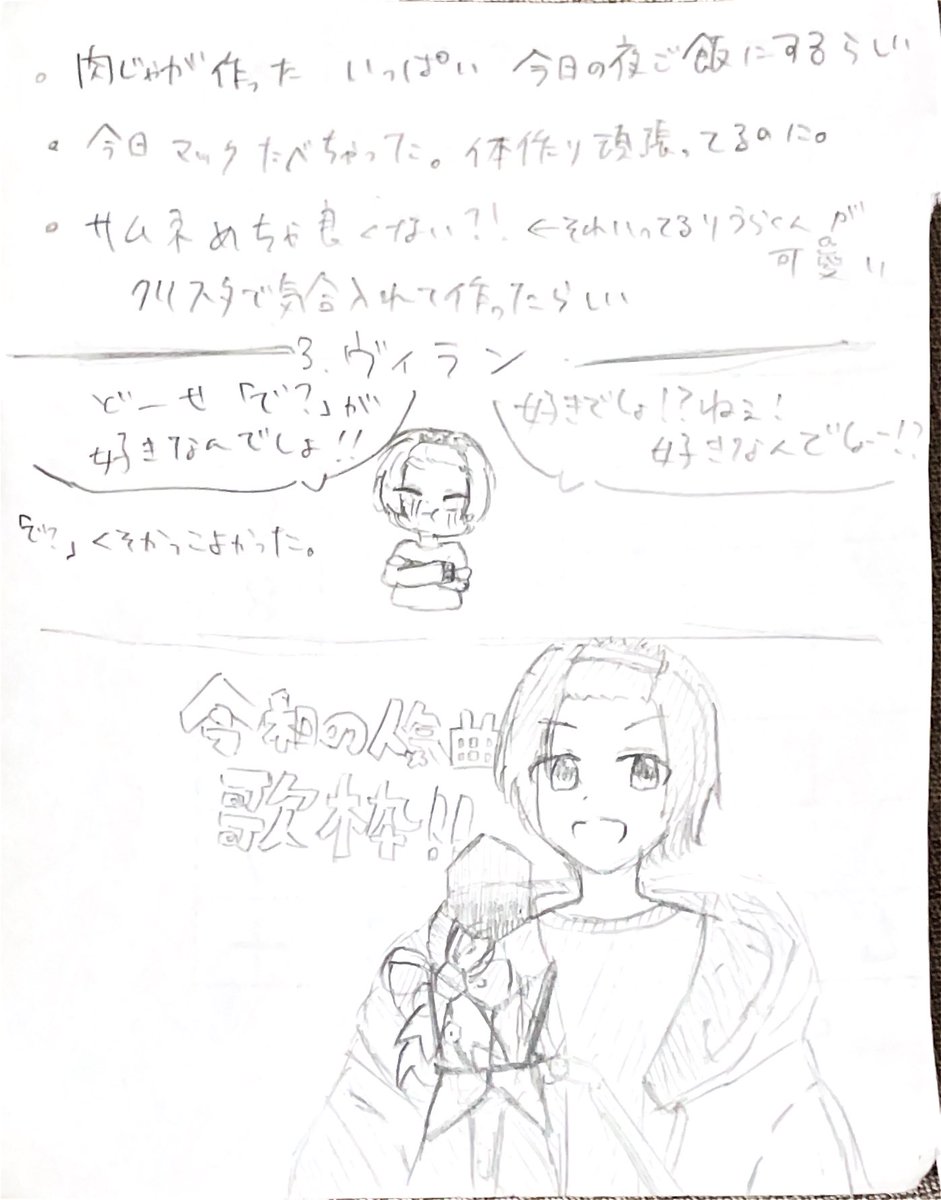 ・肉じゃが作った いっぱい 今日の夜ご飯にするらしい
・今日マックたべちゃった。体作り頑張ってるのに。
・サムネめちゃ良くない?! ←それいってるりうらくんが
可愛い
クリスタで気合入れて作ったらしい
3.ヴィラン
どーせ「で?」が
好きなんでしょ!!
好きでしょ!?ねぇ!
好きなんでしょ!?
「で?」くそかっこよかった。
令和の人気曲
歌枠!!